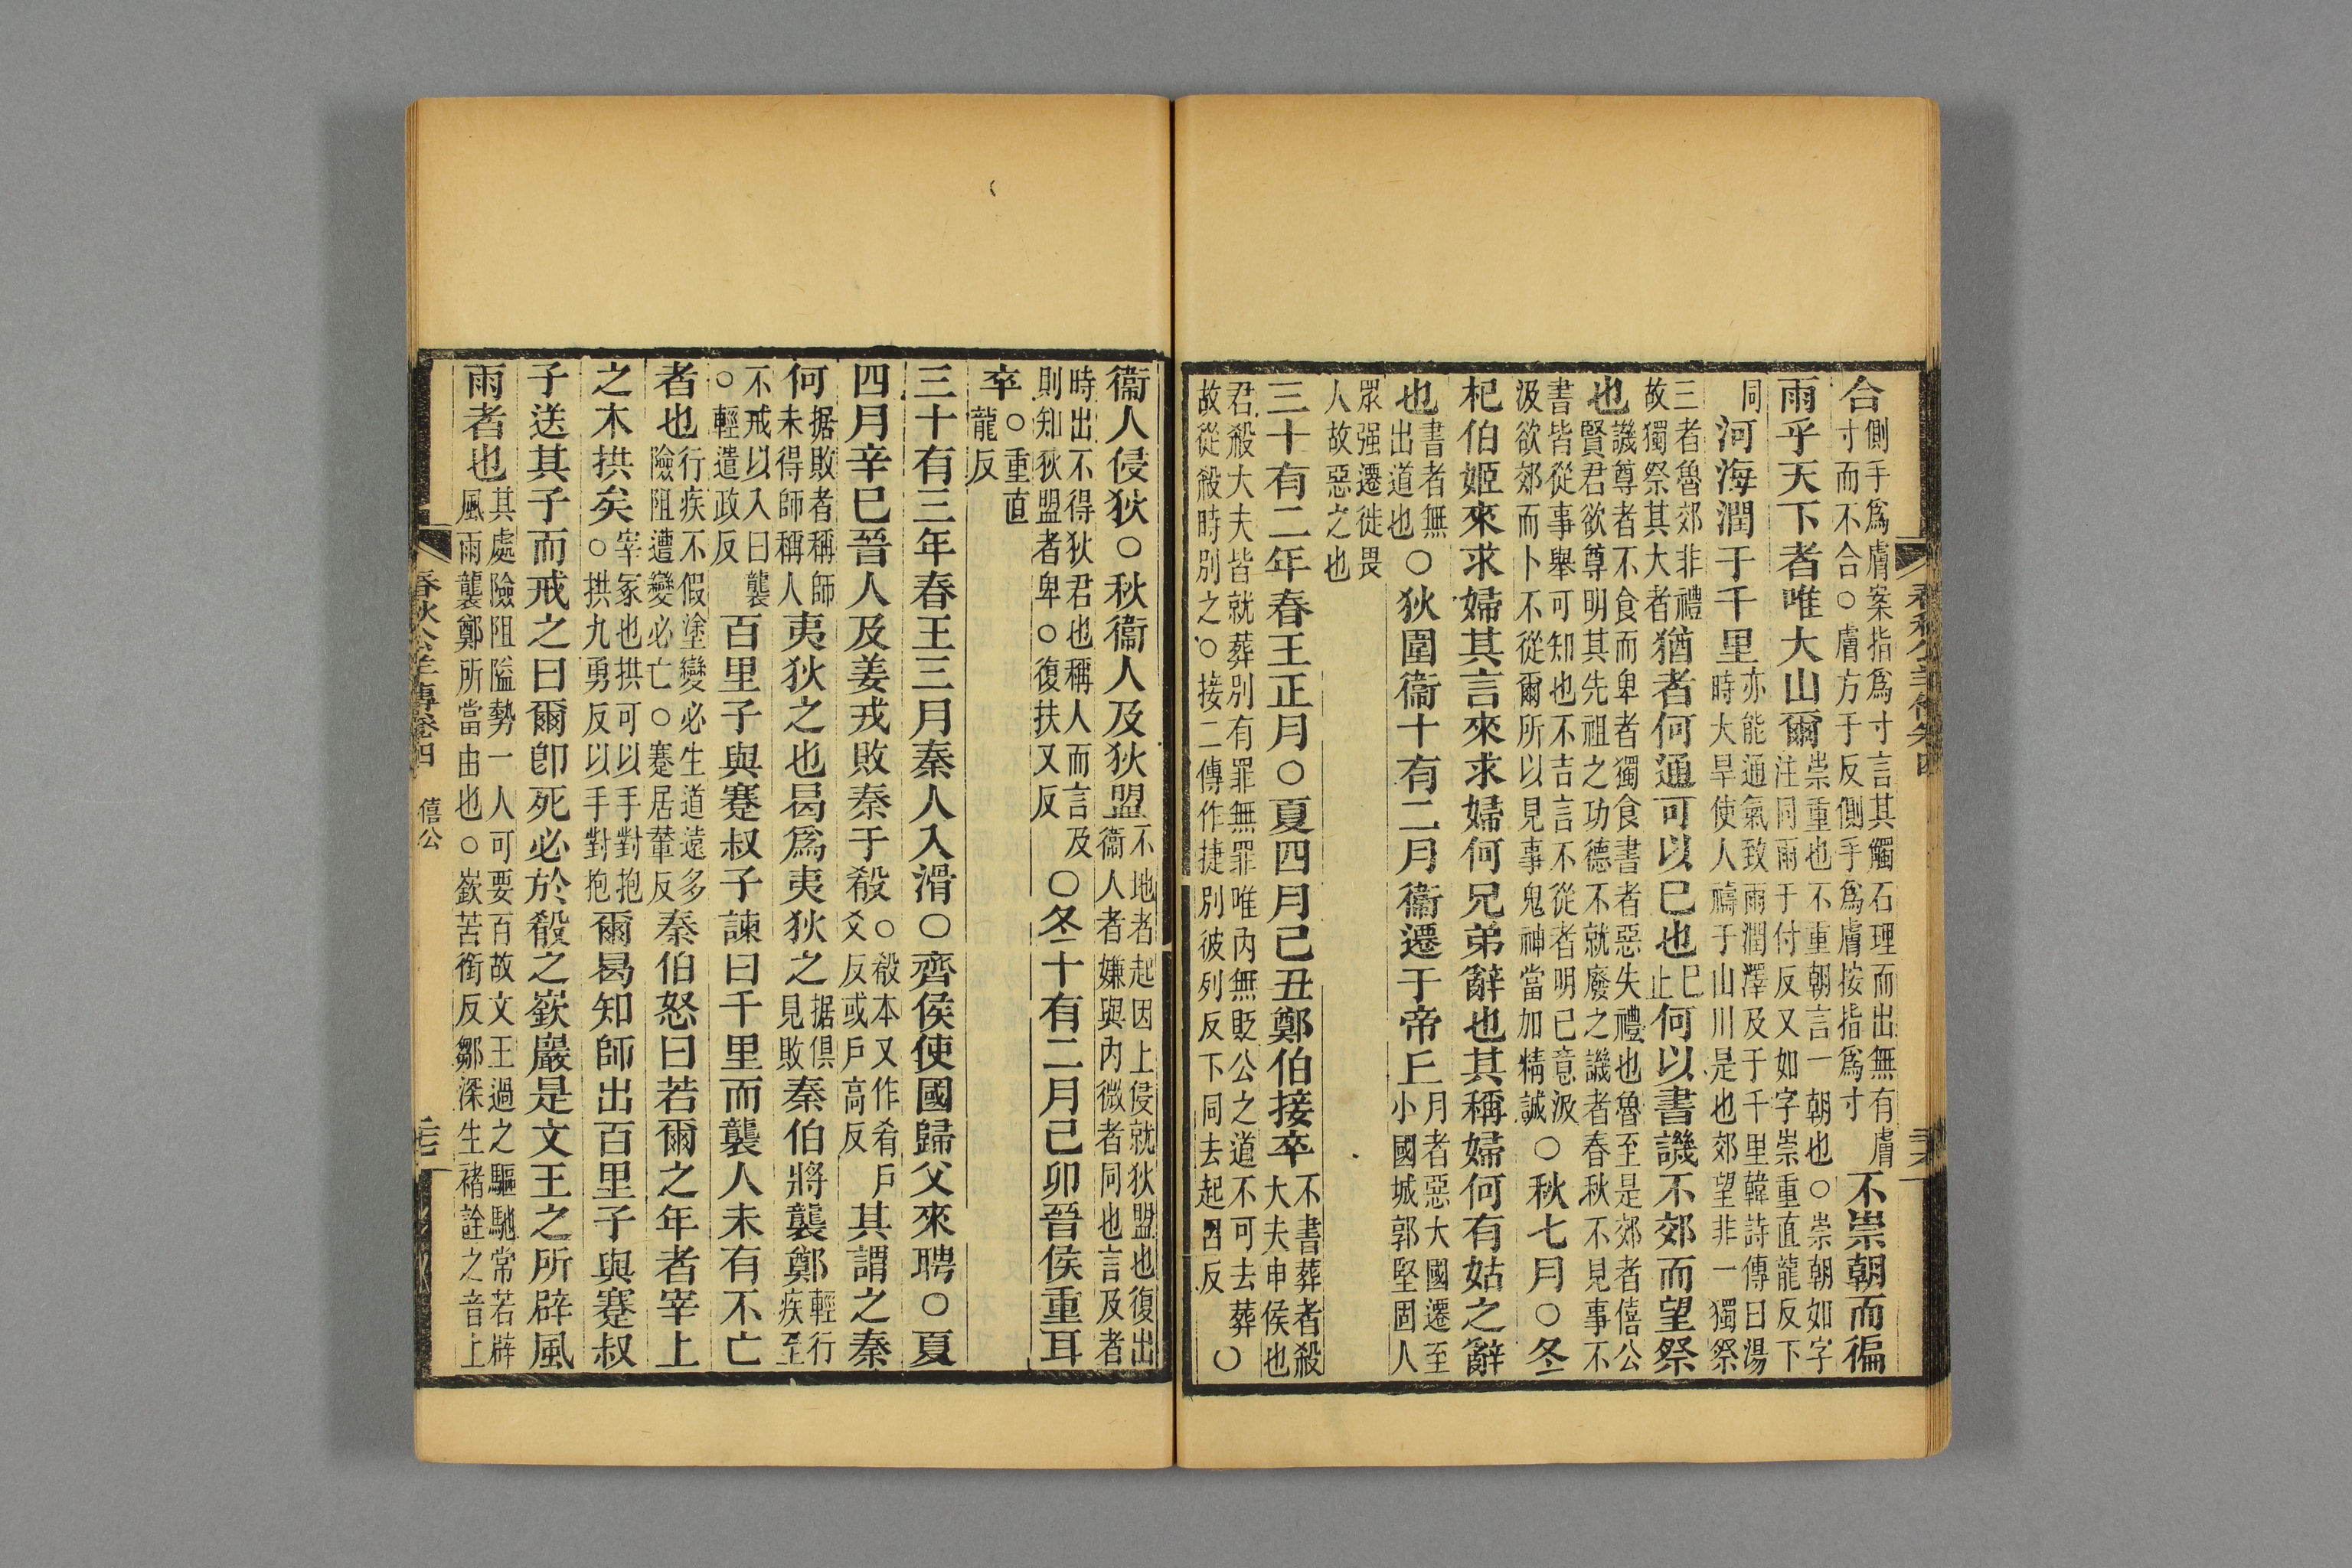 合側手爲膚案指爲寸言其觸石理而出無有膚寸而不合○膚方于反側手爲膚按指爲寸不崇朝而徧
雨乎天下者唯大山爾崇重也不重朝言一朝也○崇朝如字注同雨于付反又如字崇重直龍反下
同河海潤于千里亦能通氣致雨潤澤及于千里韓詩傳曰湯時大旱使人禱于山川是也郊望非一獨祭
三者魯郊非禮故獨祭其大者猶者何通可以已也已止何以書譏不郊而望祭
也譏尊者不食而卑者獨食書者惡失禮也魯至是郊者僖公賢君欲尊明其先祖之功德不就廢之譏者春秋不見事不
書皆從事舉可知也不吉言不從者明己意汲汲欲郊而卜不從爾所以見事鬼神當加精誠○秋七月○冬
杞伯姬來求婦其言來求婦何兄弟辭也其稱婦何有姑之辭
也書者無出道也○狄圍衞十有二月衞遷于帝丘月者惡大國遷至小國城郭堅固人
眾强遷徙畏人故惡之也
三十有二年春王正月○夏四月己丑鄭伯接卒不書葬者殺大夫申侯也
君殺大夫皆就葬別有罪無罪唯內無貶公之道不可去葬故從殺時別之○接二傳作捷別彼列反下同去起呂反○
衞人侵狄○秋衞人及狄盟不地者起因上侵就狄盟也復出衞人者嫌與內微者同也言及者
時出不得狄君也稱人而言及則知狄盟者卑○復扶又反○冬十有二月己卯晉侯重耳
卒○重直龍反
三十有三年春王三月秦人入滑○齊侯使國歸父來聘○夏
四月辛巳晉人及姜戎敗秦于殽○殽本又作肴戶爻反或戶高反其謂之秦
何据敗者稱師未得師稱人夷狄之也曷爲夷狄之据俱見敗秦伯將襲鄭輕行疾至
不戒以入曰襲○輕遣政反百里子與蹇叔子諫曰千里而襲人未有不亡
者也行疾不假塗變必生道遠多險阻遭變必亡○蹇居輦反秦伯怒曰若爾之年者宰上
之木拱矣○宰冢也拱可以手對抱拱九勇反以手對抱爾曷知師出百里子與蹇叔
子送其子而戒之曰爾卽死必於殽之嶔巖是文王之所辟風
雨者也其處險阻隘勢一人可要百故文王過之驅馳常若辟風雨襲鄭所當由也○嶔苦銜反鄒深生褚詮之音上
春秋公羊傳卷四
僖公